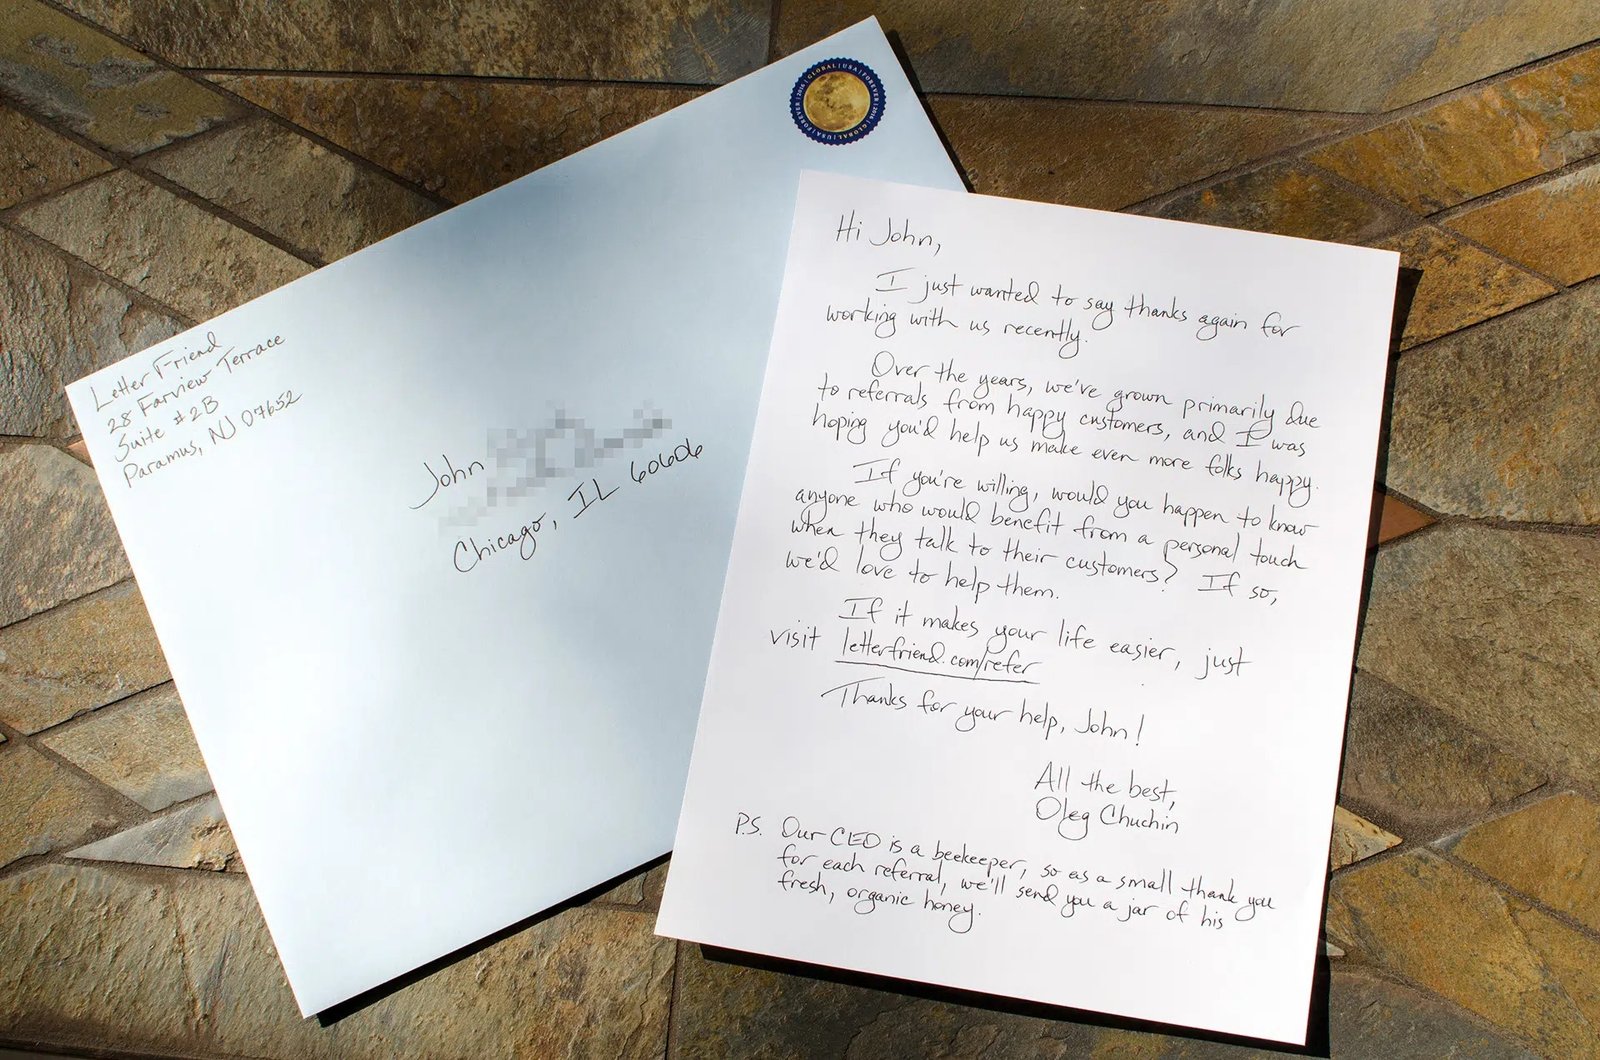 GLOBAL | USA | FOREVER | 2016 | GLOBAL | USA | FOREVER | 2016
Letter Friend
28 Farview Terrace
Suite #2B
Paramus, NJ 07652
John
Chicago, IL 60606
Hi John,
I just wanted to say thanks again for
working with us recently.
Over the years, we've grown primarily due
to referrals from happy customers, and I was
hoping you'd help us make even more folks happy.
If you're willing, would you happen to know
anyone who would benefit from a personal touch
when they talk to their customers? If so,
we'd love to help them.
If it makes your life easier, just
visit letterfriend.com/refer
Thanks for your help, John!
All the best,
Oleg Chuchin
P.S. Our CEO is a beekeeper, so as a small thank you
for each referral, we'll send you a jar of his
fresh, organic honey.